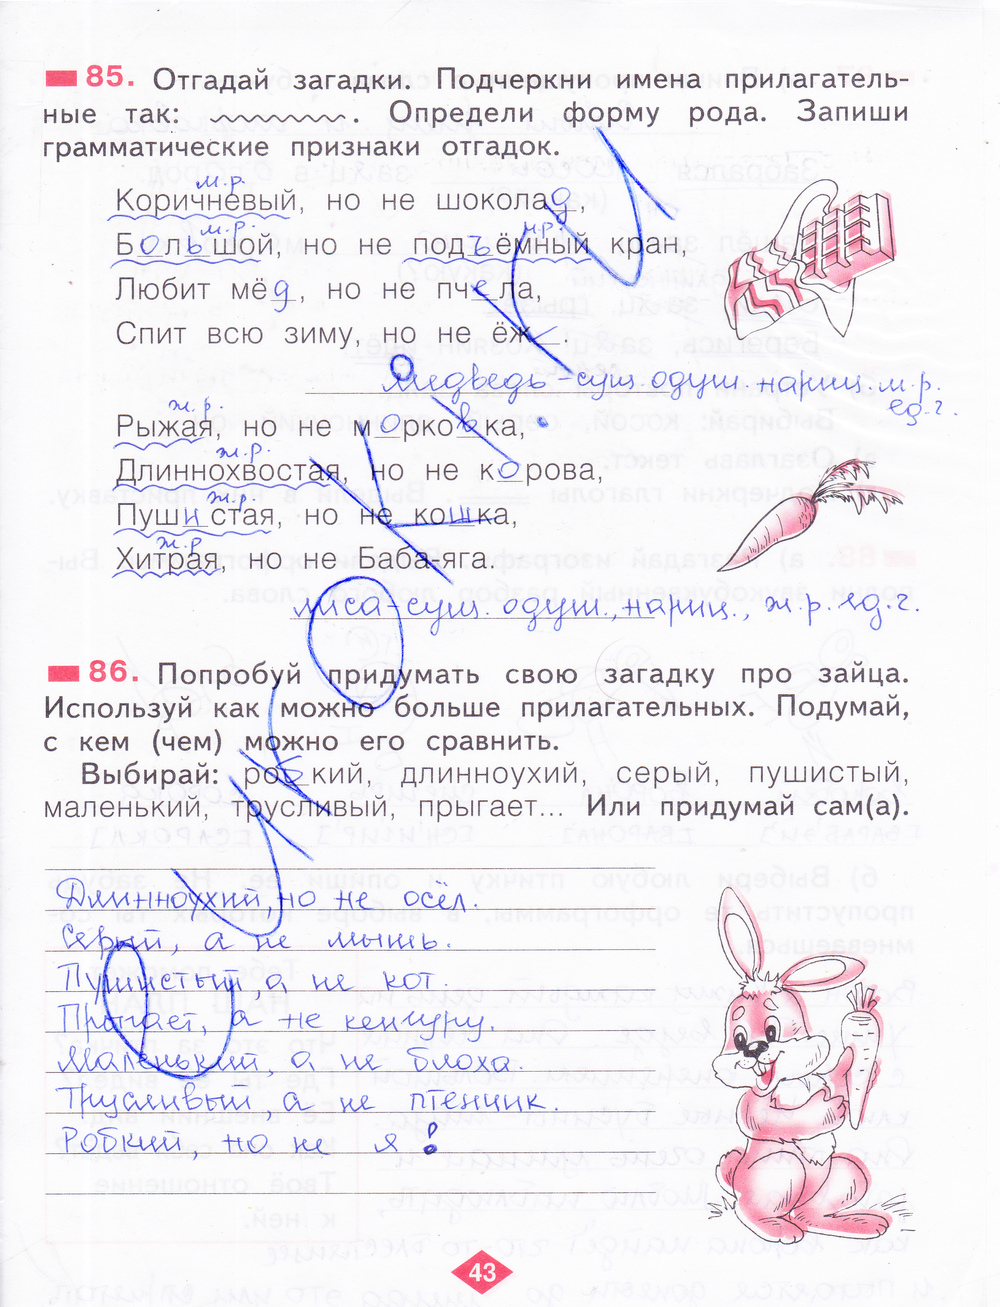 85. Отгадай загадки. Подчеркни имена прилагатель-
ные так: . Определи форму рода. Запиши
грамматические признаки отгадок.
м.р.
Коричневый, но не шоколад,
м.р. м.р.
Большой, но не подъёмный кран,
Любит мёд, но не пчела,
Спит всю зиму, но не ёж.
медведь - сущ. одуш. нариц. м.р.
ед.ч.
ж.р.
Рыжая, но не морковка,
ж.р.
Длиннохвостая, но не корова,
ж.р.
Пушистая, но не кошка,
ж.р.
Хитрая, но не Баба-яга.
лиса - сущ. одуш., нариц., ж.р. ед.ч.
86. Попробуй придумать свою загадку про зайца.
Используй как можно больше прилагательных. Подумай,
с кем (чем) можно его сравнить.
Выбирай: робкий, длинноухий, серый, пушистый,
маленький, трусливый, прыгает... Или придумай сам(а).
Длинноухий, но не осёл.
Серый, а не мышь.
Пушистый а не кот.
Прыгает, а не кенгуру.
Маленький, а не блоха.
Трусливый, а не птенчик
Робкий, но не я!
43